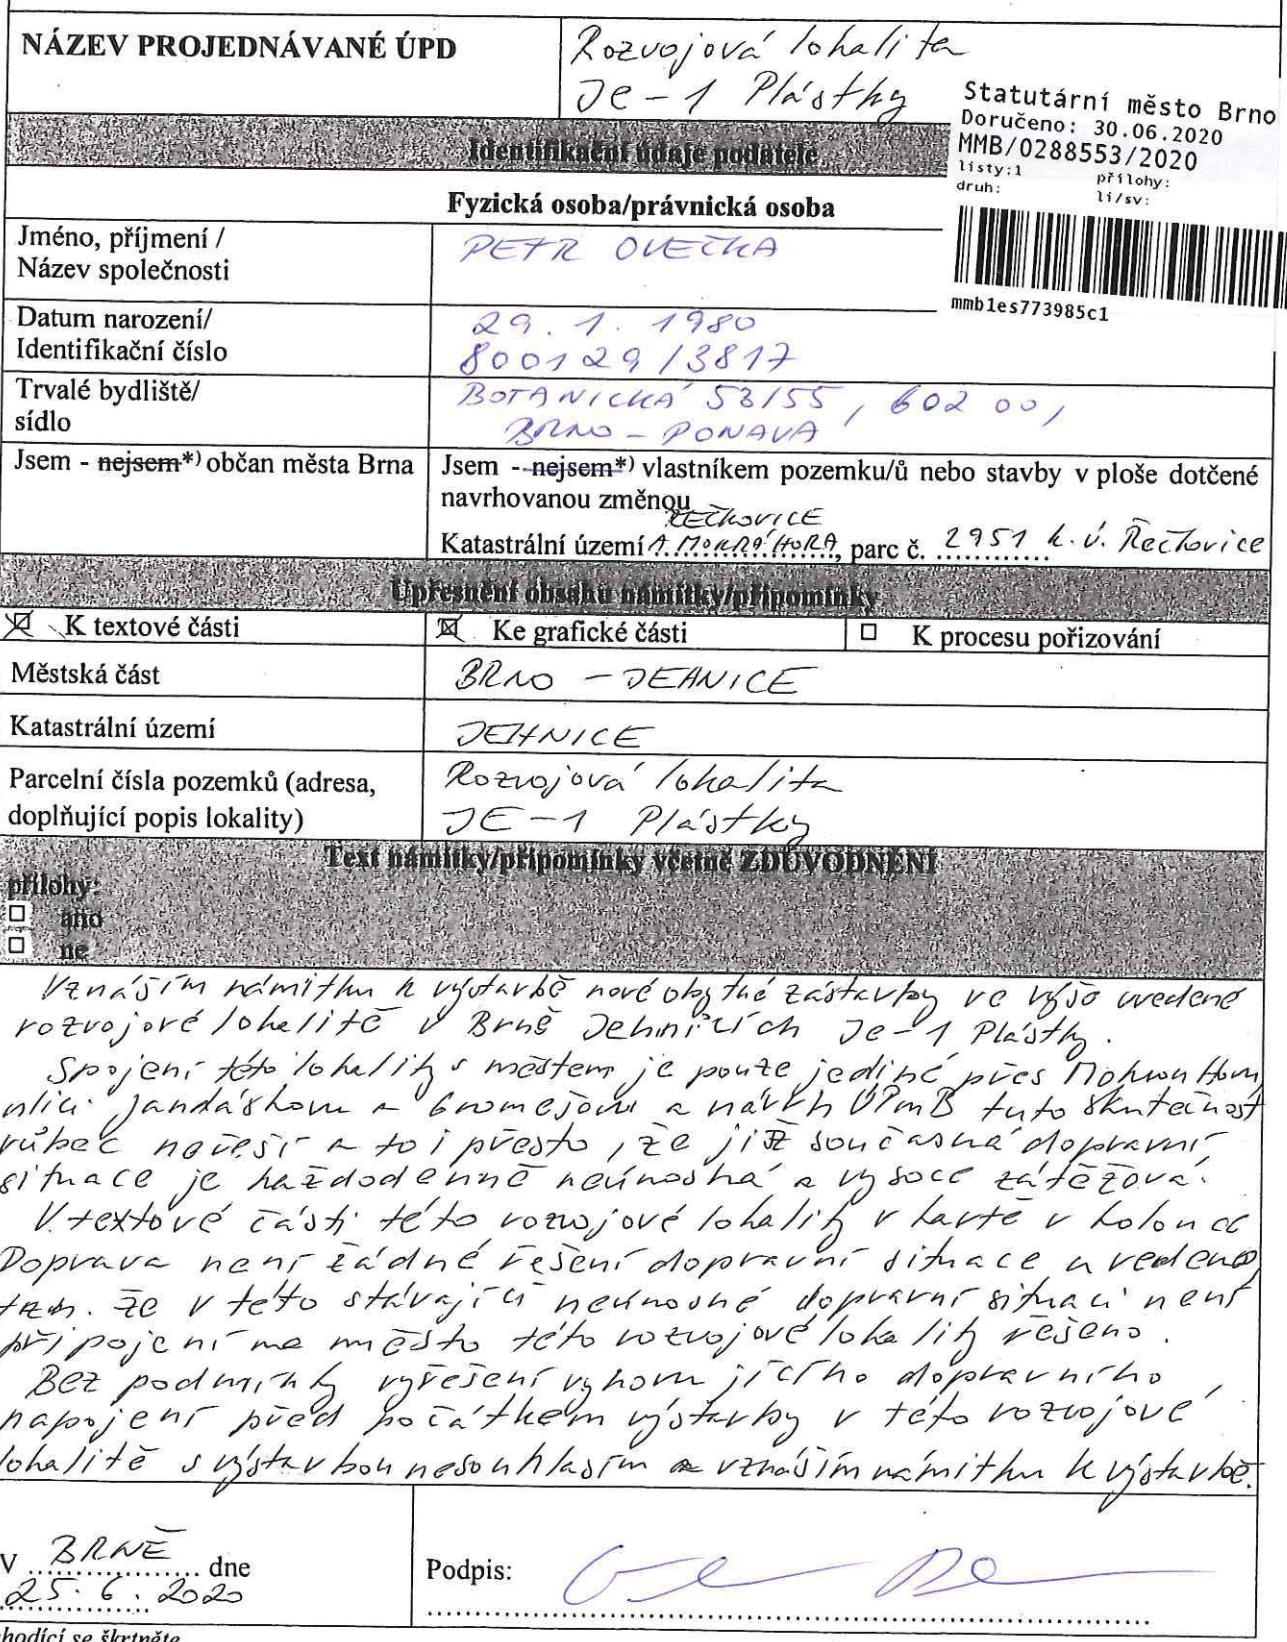 NÁZEV PROJEDNÁVANÉ ÚPD
Rozvojová lokalita
Je-1 Plástky
Statutární město Brno
Doručeno: 30.06.2020
MMB/0288553/2020
listy:1 přílohy:
druh: li/sv:
mmb1es773985c1
Identifikační údaje podatele
Fyzická osoba/právnická osoba
Jméno, příjmení /
Název společnosti
PETR OVEČKA
Datum narození/
Identifikační číslo
29. 1. 1980
800129/3817
Trvalé bydliště/
sídlo
BOTANICKÁ 53/55, 602 00,
BRNO - PONAVA
Jsem - nejsem*) občan města Brna
Jsem - nejsem*) vlastníkem pozemku/ů nebo stavby v ploše dotčené
navrhovanou změnou
ŘEČKOVICE
Katastrální území A MOKRÁ HORA, parc č. 2951 k.ú. Řečkovice
Upřesnění obsahu námitky/připomínky
☒ K textové části ☒ Ke grafické části ☐ K procesu pořizování
Městská část
BRNO - JEHNICE
Katastrální území
JEHNICE
Parcelní čísla pozemků (adresa,
doplňující popis lokality)
Rozvojová lokalita
JE-1 Plástky
Text námitky/připomínky včetně ZDŮVODNĚNÍ
přílohy:
☐ ano
☐ ne
Vznáším námitku k výstavbě nové obytné zástavby ve výše uvedené
rozvojové lokalitě v Brně Jehnicích Je-1 Plástky.
Spojení této lokality s městem je pouze jediné přes Mokrou Horu
ulici Jandáskovu a Gromešovu a návrh ÚPmB tuto skutečnost
vůbec neřeší a to i přesto, že již současná dopravní
situace je každodenně neúnosná a vysoce zátěžová.
V textové části této rozvojové lokality v kartě v kolonce
Doprava není žádné řešení dopravní situace uvedeno,
tzn. že v této stávající neúnosné dopravní situaci není
připojení na město této rozvojové lokality řešeno.
Bez podmínky vyřešení vyhovujícího dopravního
napojení před počátkem výstavby v této rozvojové
lokalitě s výstavbou nesouhlasím a vznáším námitku k výstavbě.
V BRNĚ dne
25. 6. 2020
Podpis:
hodící se škrtněte